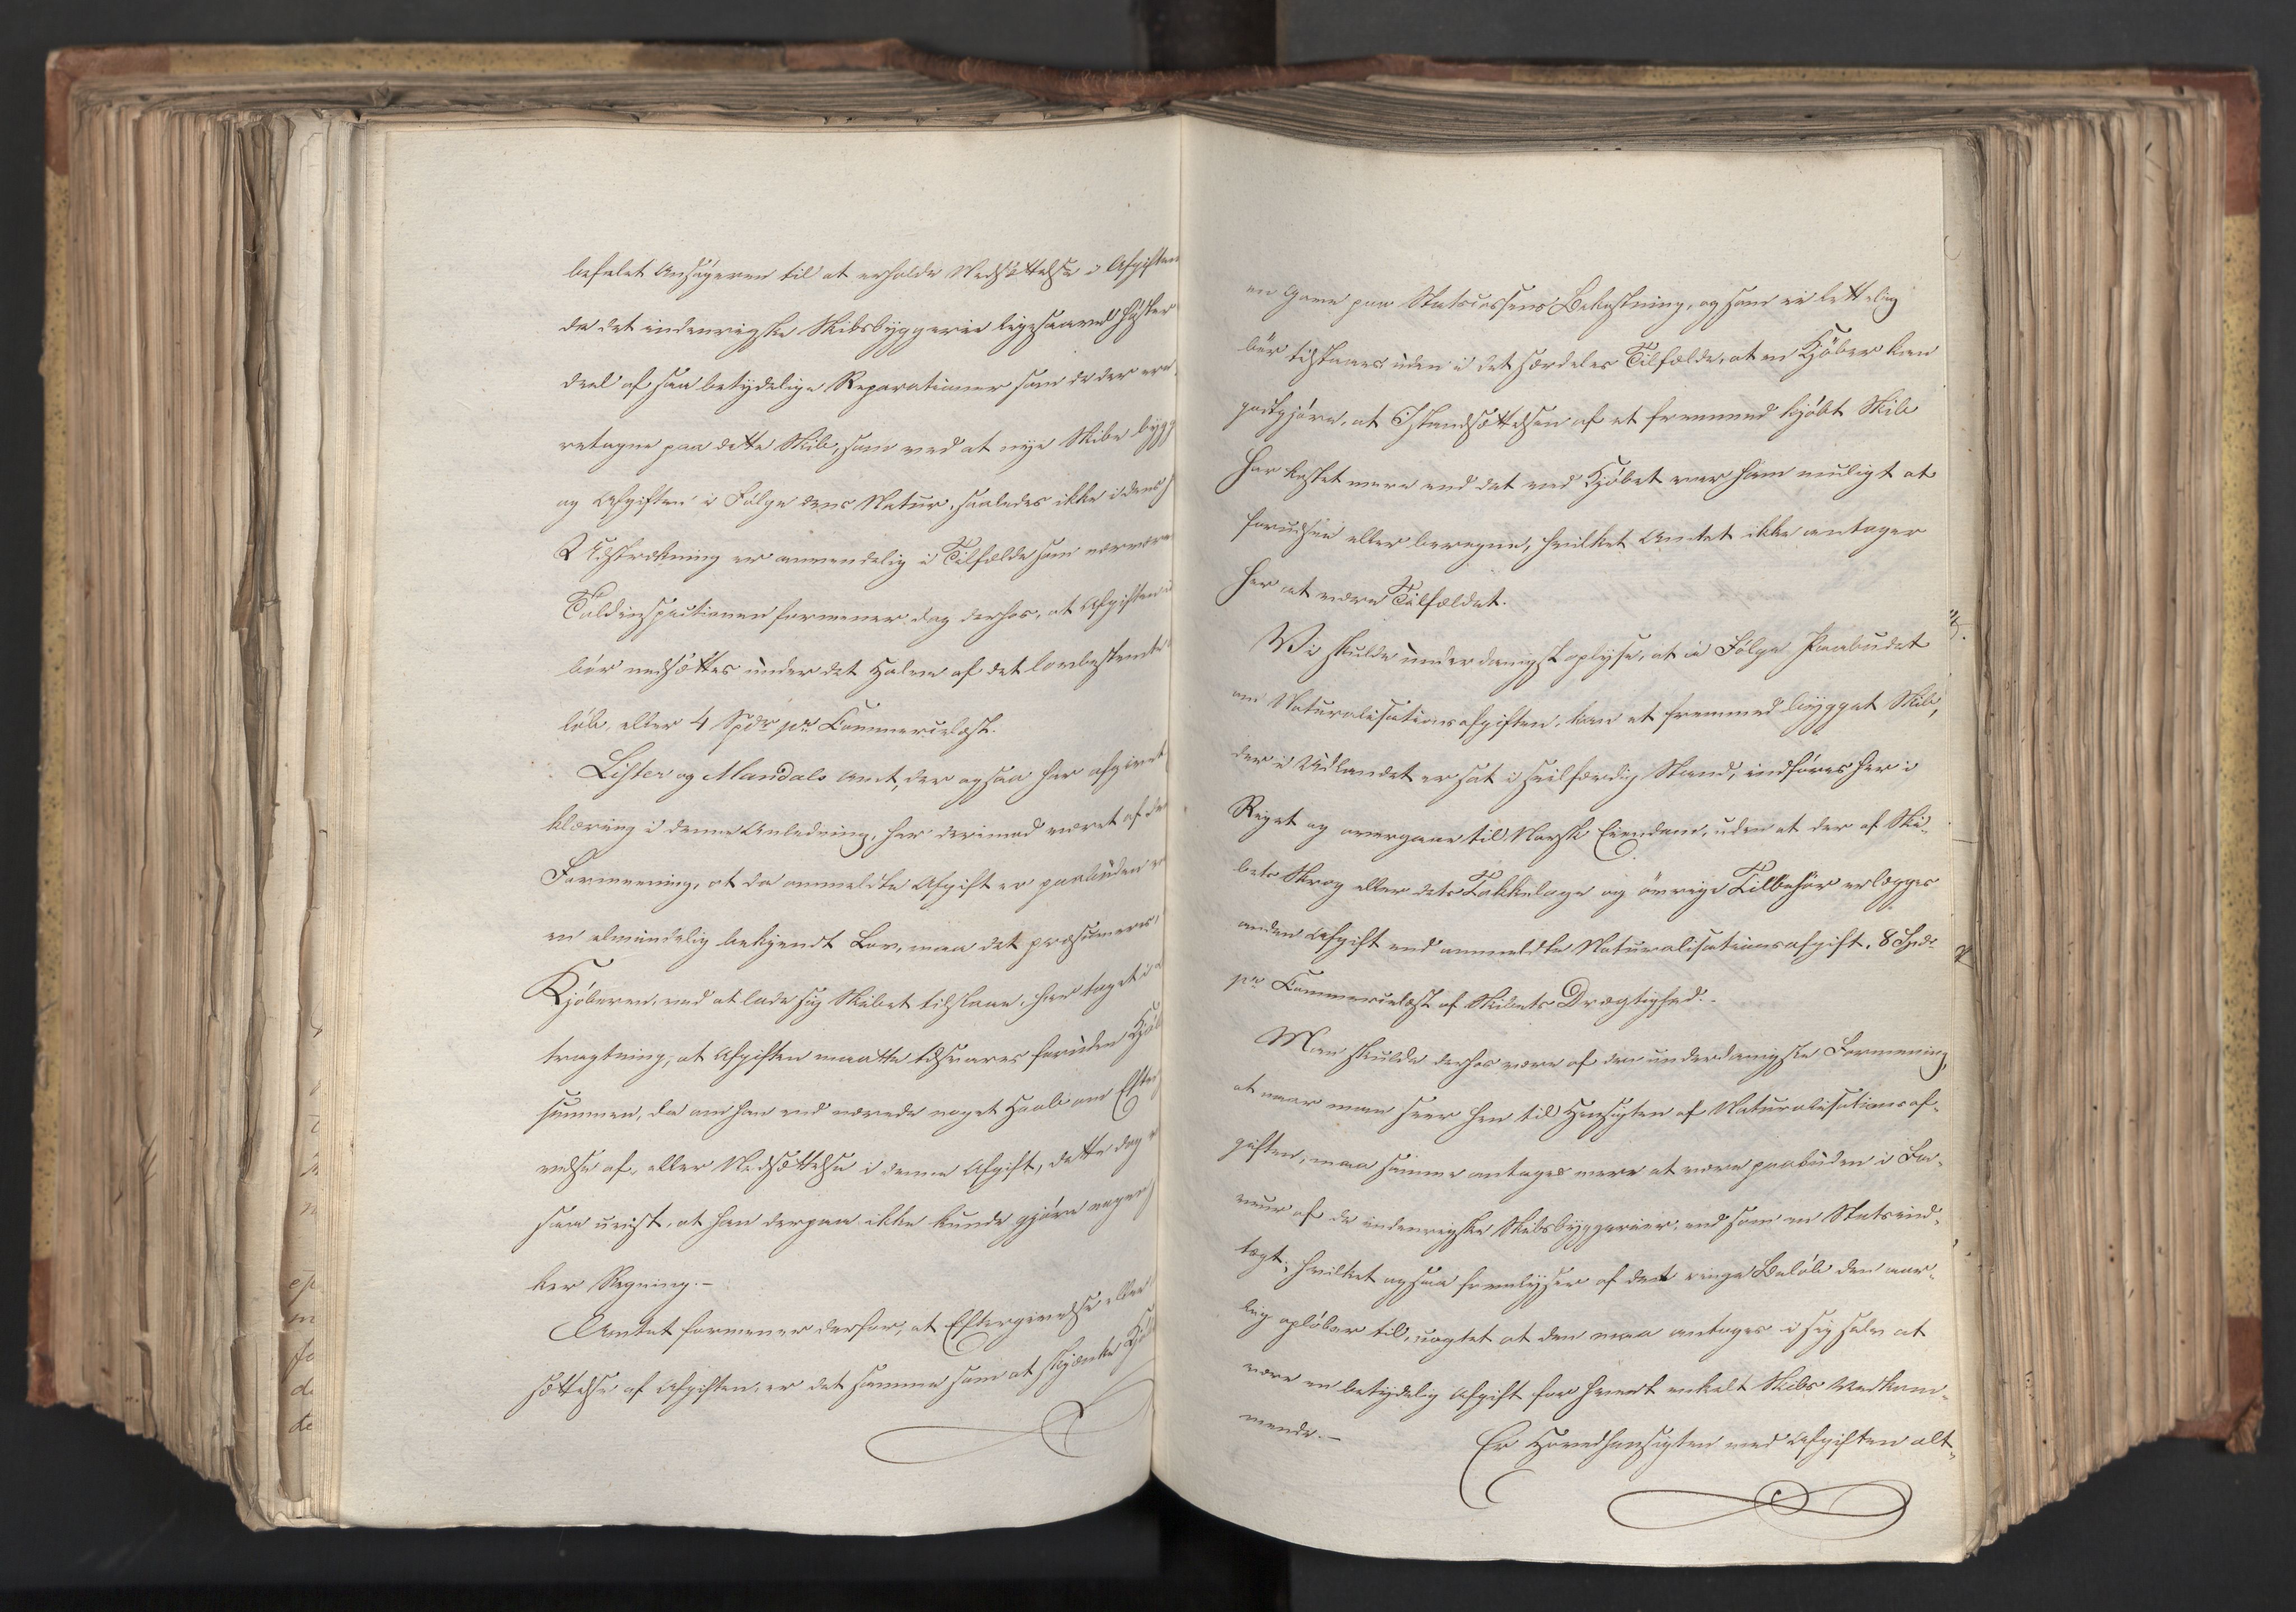 befalet Ansøgeren til at erholde Nedsættelse i Afgiften
da det indenrigske Skibsbyggerie ligesaavel høster
deel af saa betydelige Reparationer som de der ere
retagne paa dette Skib, som ved at nye Skibe bygg
og Afgiften i Følge dens Natur, saaledes ikke i dens
Udstrækning er anvendelig i Tilfælde som nærvære
Toldinspectionen formener dog derhos, at Afgiften
bør nedsættes under det Halve af det lovbestemte
løb, eller 4 Spdr pr Commercelæst.
Lister og Mandals Amt, der ogsaa har afgivet
klæring i denne Anledning, har derimod været af de
Formening, at da anmeldte Afgift er paabuden
en almindelig bekjendt Lov, maa det præsumeres,
Kjøberen, ved at lade sig Skibet tilslaae, har taget i
tragtning, at Afgiften maatte tilsvares foruden Kjøb
summen, da om han end nærede noget Haab om Efter
velse af, eller Nedsættelse i denne Afgift, dette dog
saa uvist, at han derpaa ikke kunde gjøre nogen
ker Regning.-
Amtet formener derfor, at Eftergivelse eller
sættelse af Afgiften, er det samme som at skjænke Kjøb
en Gave paa Statscassens Bekostning, og som ei lettelig
bør tilstaaes uden i det særdeles Tilfælde, at en Kjøber kan
godtgjøre, at Istandsættelsen af et fremmed kjøbt Skib
har kostet mere end det ved Kjøbet var ham muligt at
forudsee eller beregne, hvilket Amtet ikke antager
her at være Tilfældet.
Vi skulde underdanigst oplyse, at i Følge Paabudet
om Naturalisationsafgiften, kan et fremmed bygget Skib,
der i Udlandet er sat i seilfærdig Stand, indføres her i
Riget og overgaae til Norsk Eiendom, uden at der af Ski-
bets Skrog eller dets Takkelage og øvrige Tilbehør erlægges
anden Afgift end anmeldte Naturalisationsafgift, 8 Spdr
pr Commercelæst af Skibets Drægtighed.-
Man skulde derhos være af den underdanigste Formening,
at naar man seer hen til Hensigten af Naturalisationsaf-
giften, maa samme antages mere at være paabuden i Fa-
veur af de indenrigske Skibsbyggerier, end som en Statsind-
tægt; hvilket ogsaa fremlyser af det ringe Beløb den aar-
lig opløber til, uagtet at den maa antages i sig selv at
være en betydelig Afgift for hvert enkelt Skibs Vedkom-
mende.-
Er Hovedhensigten med Afgiften alt-